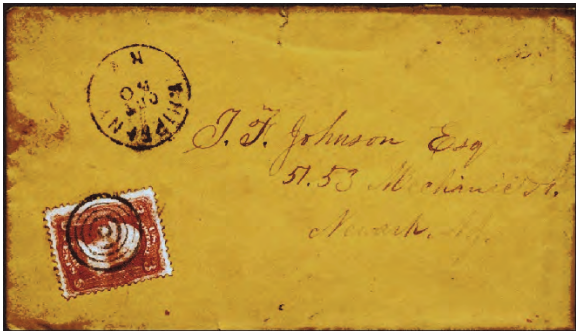 WHIPPANY
N
OCT
T. F. Johnson Esq
51.53 Mechanic St.
Newark.